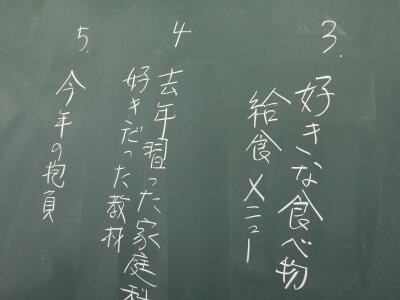 3.
好きな食べ物
給食メニュー
4
去年習った家庭科
好きだった教材
5.
今年の抱負